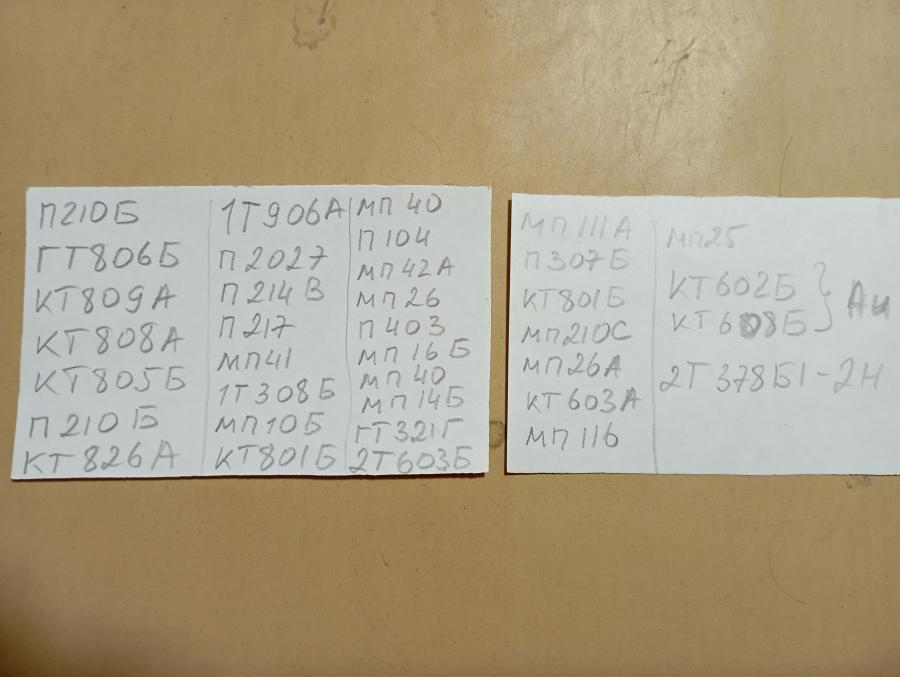 П210Б
ГТ806Б
КТ809А
КТ808А
КТ805Б
П210Б
КТ826А
1Т906А
П2027
П214В
П217
МП41
1Т308Б
МП10Б
КТ801Б
МП40
П104
МП42А
МП26
П403
МП16Б
МП40
МП14Б
ГТ321Г
2Т603Б
МП111А
П307Б
КТ801Б
МП210С
МП26А
КТ603А
МП116
МП25
КТ602Б
КТ608Б
Аи
2Т378Б1-2Н